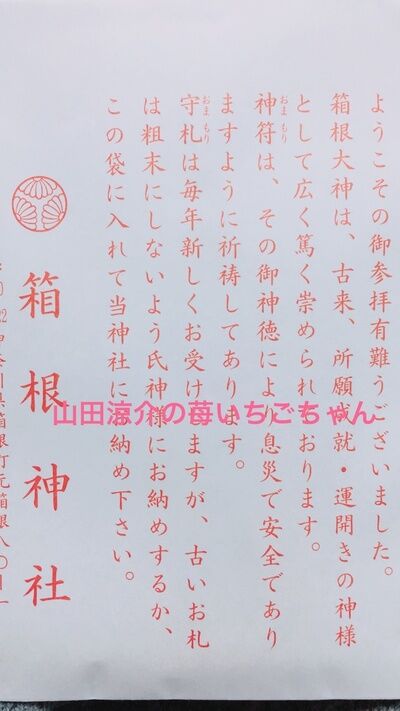 ようこその御参拝有難うございました。
箱根大神は、古来、所願成就・運開きの神様
として広く篤く崇められております。
神符は、その御神徳により息災で安全であり
おま もり
ますように祈祷してあります。
守札は毎年新しくお受けしますが、古いお札
おま もり
は粗末にしないよう氏神様にお納めするか、
この袋に入れて当神社にお納め下さい。
箱根神社
山田涼介の苺いちごちゃん